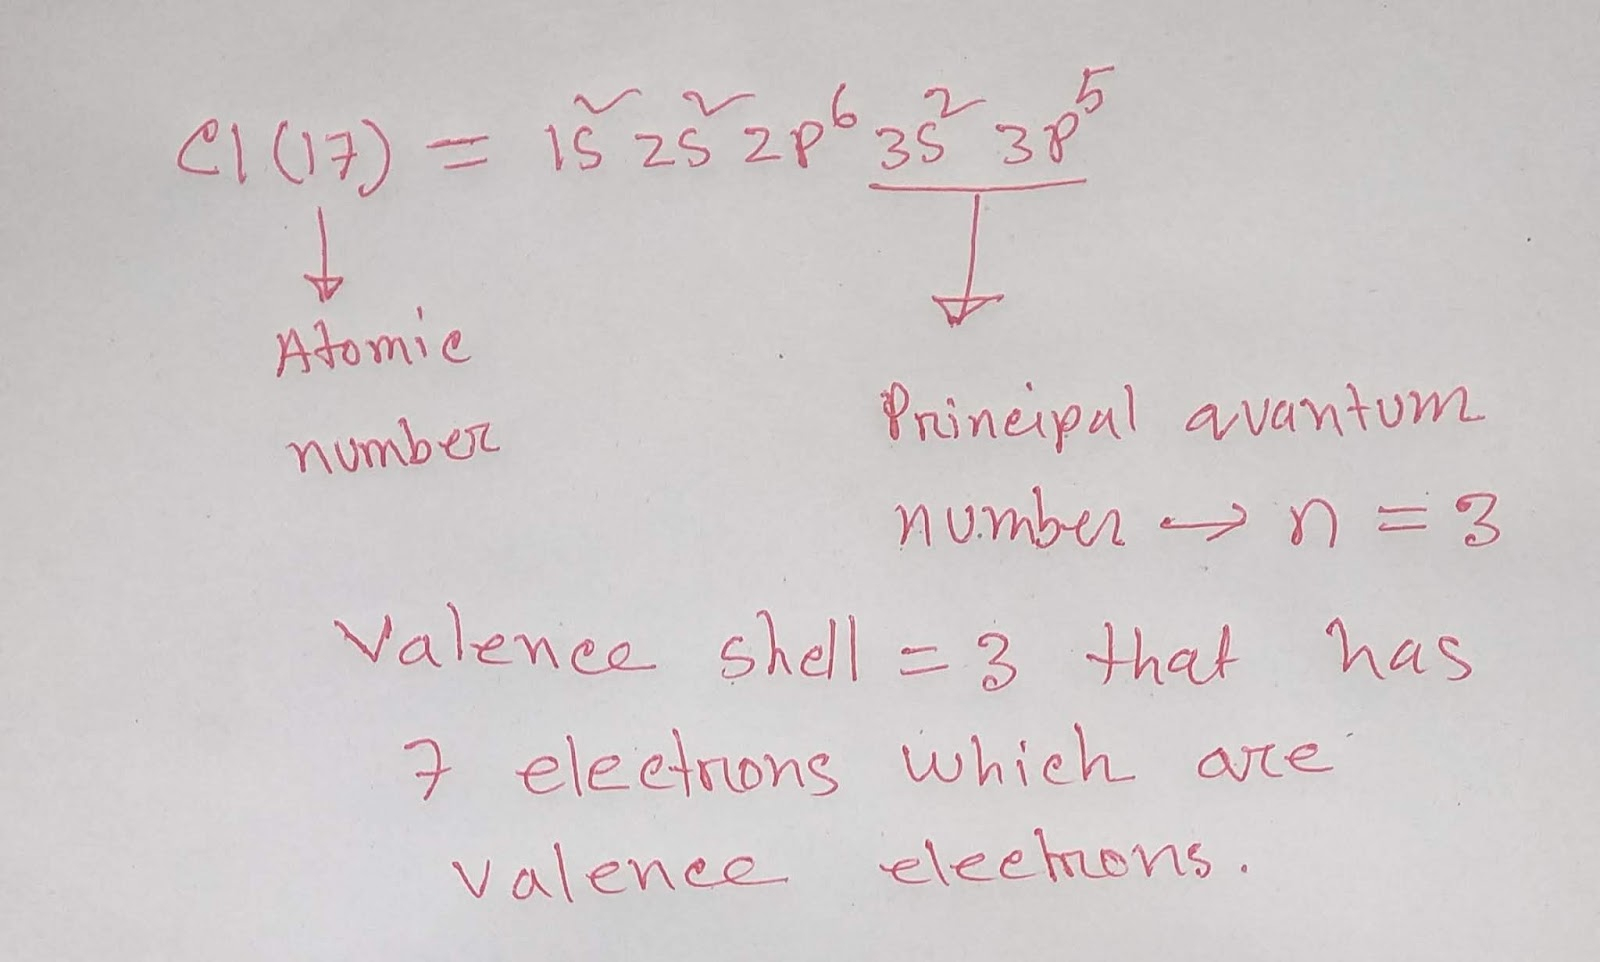 Cl (17) = 1s² 2s² 2p⁶ 3s² 3p⁵
↓
Atomic
number
↓
Principal quantum
number → n = 3
Valence shell = 3 that has
7 electrons which are
valence electrons.